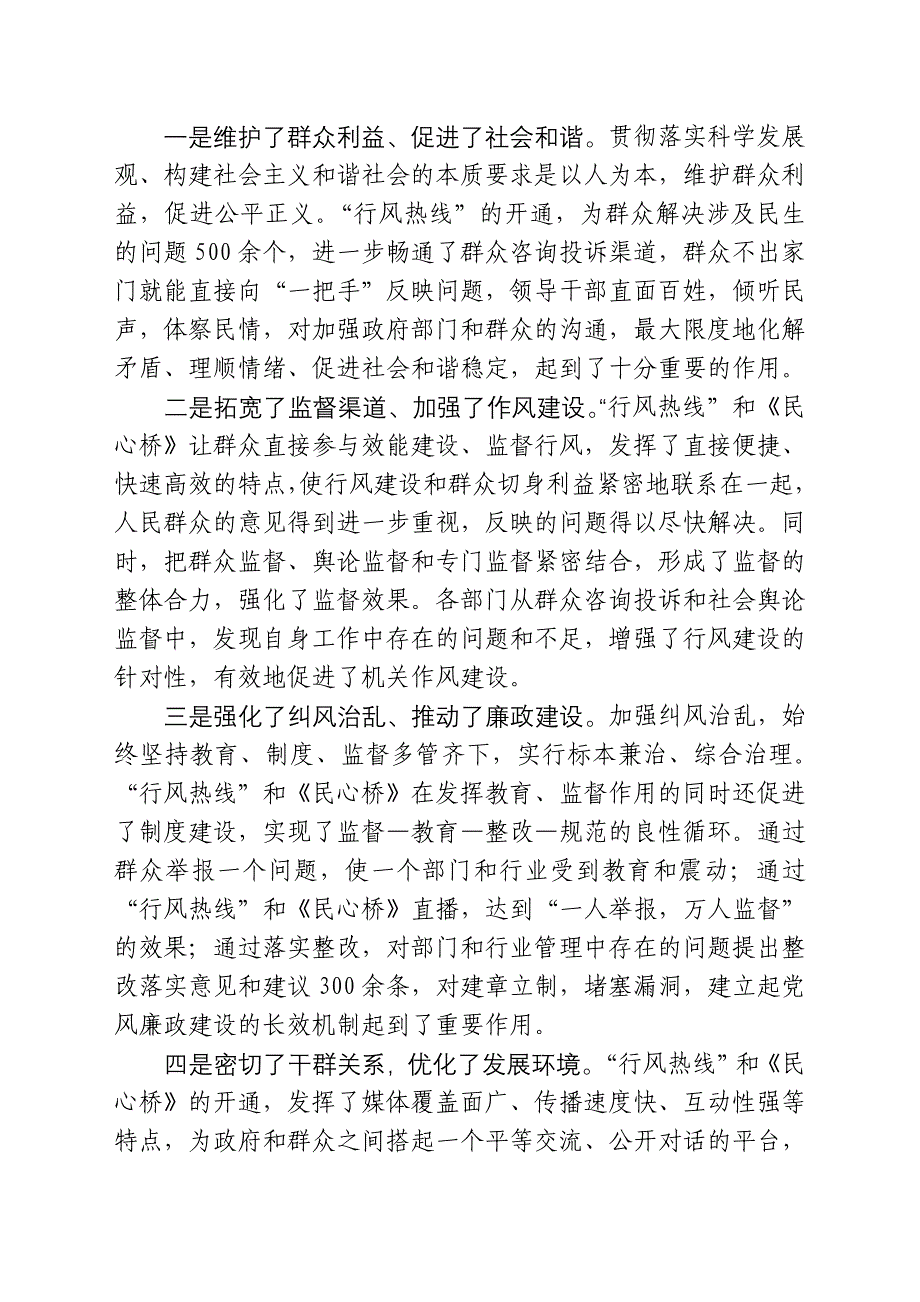 一是维护了群众利益、促进了社会和谐。贯彻落实科学发展
观、构建社会主义和谐社会的本质要求是以人为本，维护群众利
益，促进公平正义。“行风热线”的开通，为群众解决涉及民生
的问题 500 余个，进一步畅通了群众咨询投诉渠道，群众不出家
门就能直接向“一把手”反映问题，领导干部直面百姓，倾听民
声，体察民情，对加强政府部门和群众的沟通，最大限度地化解
矛盾、理顺情绪、促进社会和谐稳定，起到了十分重要的作用。
二是拓宽了监督渠道、加强了作风建设。“行风热线”和《民
心桥》让群众直接参与效能建设、监督行风，发挥了直接便捷、
快速高效的特点，使行风建设和群众切身利益紧密地联系在一起，
人民群众的意见得到进一步重视，反映的问题得以尽快解决。同
时，把群众监督、舆论监督和专门监督紧密结合，形成了监督的
整体合力，强化了监督效果。各部门从群众咨询投诉和社会舆论
监督中，发现自身工作中存在的问题和不足，增强了行风建设的
针对性，有效地促进了机关作风建设。
三是强化了纠风治乱、推动了廉政建设。加强纠风治乱，始
终坚持教育、制度、监督多管齐下，实行标本兼治、综合治理。
“行风热线”和《民心桥》在发挥教育、监督作用的同时还促进
了制度建设，实现了监督—教育—整改—规范的良性循环。通过
群众举报一个问题，使一个部门和行业受到教育和震动；通过
“行风热线”和《民心桥》直播，达到“一人举报，万人监督”
的效果；通过落实整改，对部门和行业管理中存在的问题提出整
改落实意见和建议 300 余条，对建章立制，堵塞漏洞，建立起党
风廉政建设的长效机制起到了重要作用。
四是密切了干群关系，优化了发展环境。“行风热线”和《民
心桥》的开通，发挥了媒体覆盖面广、传播速度快、互动性强等
特点，为政府和群众之间搭起一个平等交流、公开对话的平台，